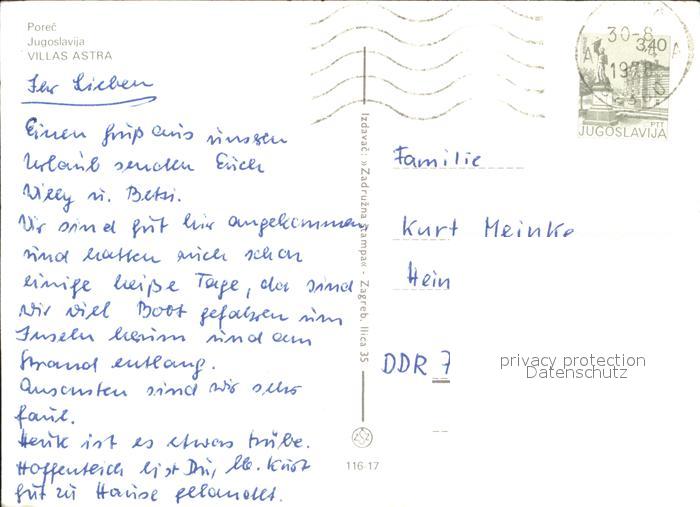 Poreč
Jugoslavija
VILLAS ASTRA
Ihr Lieben
Einen Gruß aus unserem
Urlaub senden Euch
Willy u. Betsi.
Wir sind gut hier angekommen
und hatten auch schon
einige heiße Tage, da sind
wir viel Boot gefahren um
Inseln herum und am
Strand entlang.
Ansonsten sind wir sehr
faul.
Heute ist es etwas trübe.
Hoffentlich bist Du, lb. Kurt
gut zu Hause gelandet.
Izdavač: »Zadružna štampa« - Zagreb, Ilica 35
116-17
30-8
1978
3,40
PTT
JUGOSLAVIJA
Familie
Kurt Meinke
Hein
DDR 7
privacy protection
Datenschutz